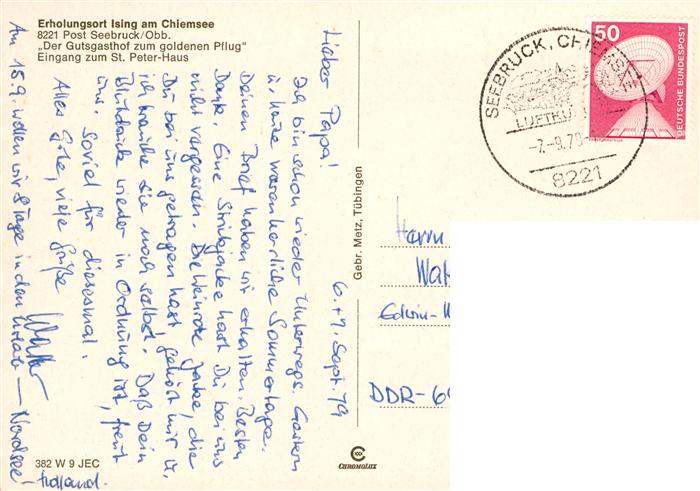 Erholungsort Ising am Chiemsee
8221 Post Seebruck/Obb.
„Der Gutsgasthof zum goldenen Pflug"
Eingang zum St. Peter-Haus
6.+7. Sept. 79
Lieber Papa!
Ich bin schon wieder Unterwegs. Gestern
u. heute waren herrliche Sommertage.
Deinen Brief haben wir erhalten. Besten
Dank. Eine Strickjacke hast Du bei uns
nicht vergessen. Die Weinrote Jacke, die
Du bei uns getragen hast gehört mir u.
ich brauche sie noch selbst. Daß Dein
Blutdruck wieder in Ordnung ist, freut
uns. Soviel für diesesmal.
Alles Gute, viele Grüße
Walter
Am 15.9. wollen wir 8 Tage in den Urlaub – Nordsee!
Holland.
382 W 9 JEC
Gebr. Metz, Tübingen
CHROMOLUX
SEEBRUCK, CHIEMSEE
LUFTKUR
-7.-9.79
8221
50
DEUTSCHE BUNDESPOST
Herrn
Wal
Edwin-W
DDR-69